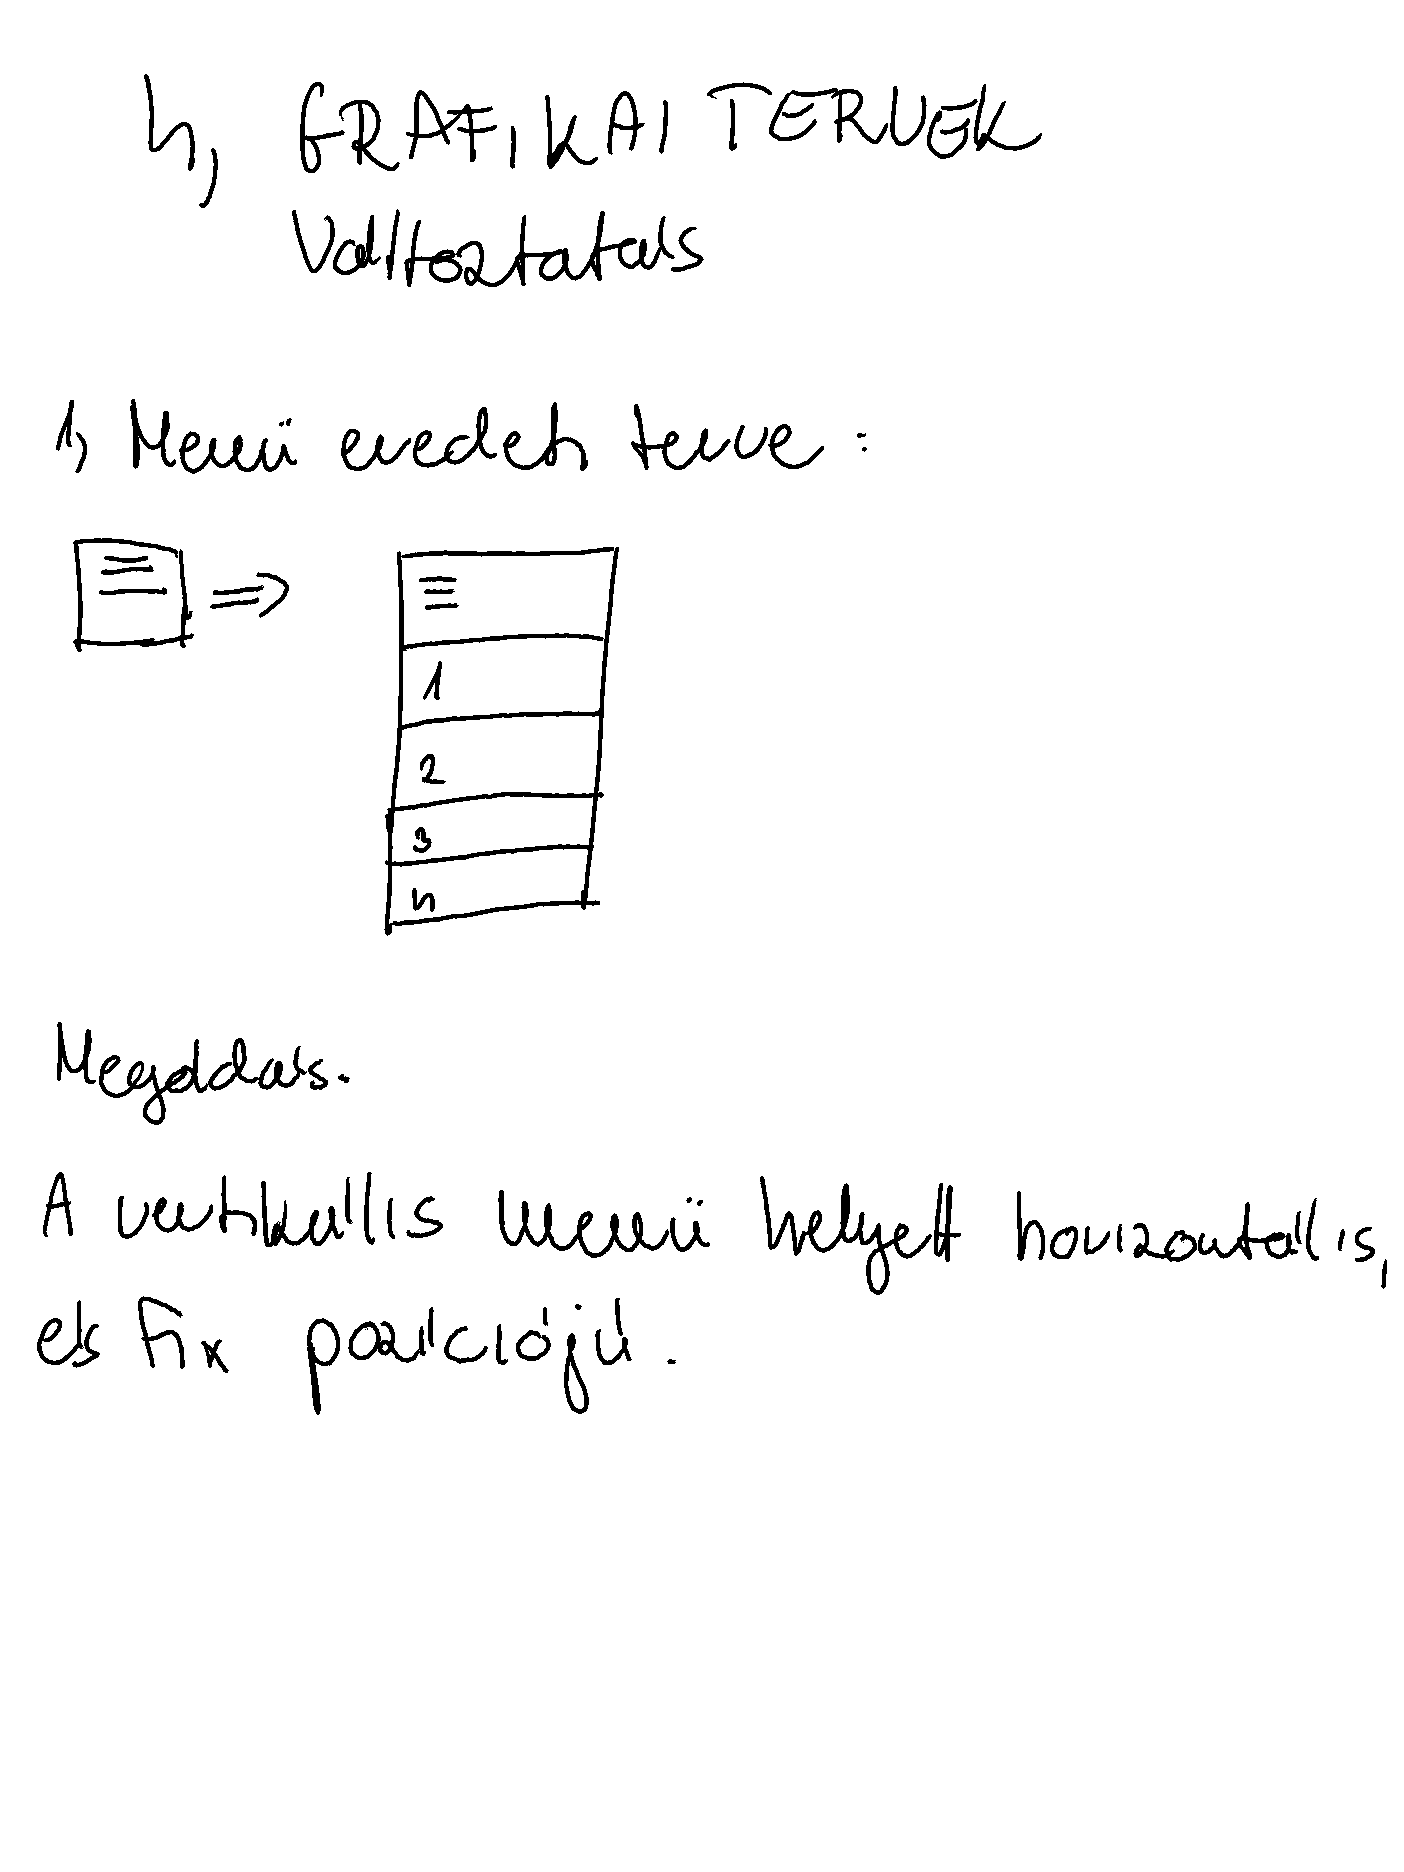 4, GRAFIKAI TERVEK
Változtatás
1, Menü eredeti terve :
1
2
3
4
Megoldás.
A vertikális menü helyett horizontális,
és fix pozíciójú.